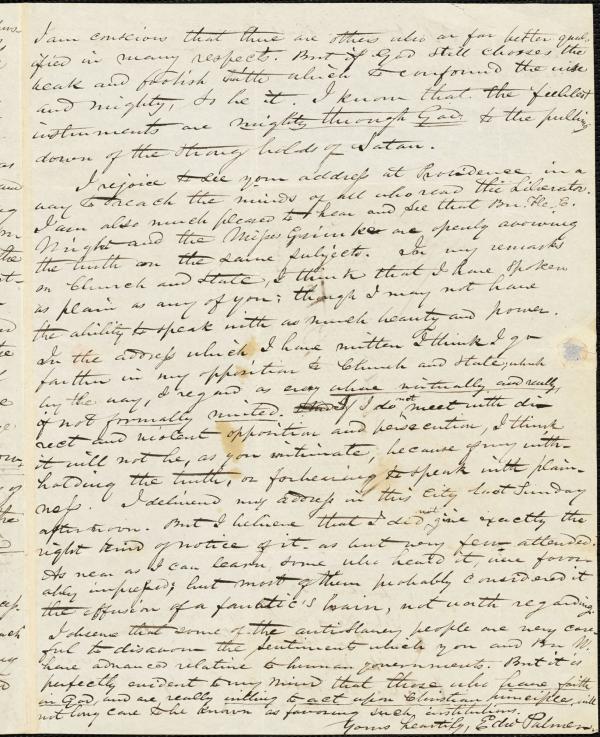 I am conscious that there are others who are far better qual-
ified in many respects. But if God still chooses the
weak and foolish with which to confound the wise
and mighty, so be it. I know that the feeblest
instruments are mighty through God to the pulling
down of the strong holds of Satan.
I rejoice to see your address at Providence in a
way to reach the minds of all who read the Liberator.
I am also much pleased to hear and see that Bro. H. C.
Wright and the Misses Grimke are openly avowing
the truth on the same subjects. In my remarks
on Church and State, I think that I have spoken
as plain as any of you; though I may not have
the ability to speak with as much beauty and power.
In the address which I have written I think I go
farther in my opposition to Church and State, which
by the way, I regard as every where virtually and really,
if not formally united. If I do not meet with di-
rect and violent opposition and persecution, I think
it will not be, as you intimate, because of my with-
holding the truth, or forbearing to speak with plain-
ness. I delivered my address in this city last Sunday
afternoon. But I believe that I did not give exactly the
right kind of notice of it, as but very few attended.
As near as I can learn, some who heard it, were favor-
ably impressed; but most of them probably considered it
the effusion of a fanatic's brain, not worth regarding.
I observe that some of the antislavery people are very care-
ful to disavow the sentiment which you and Bro. W.
have advanced relative to human governments. But it is
perfectly evident to my mind that those who have faith
in God, and are really willing to act upon Christian principles, will
not long care to be known as favoring such institutions.
Yours heartily, Edw. Palmer.